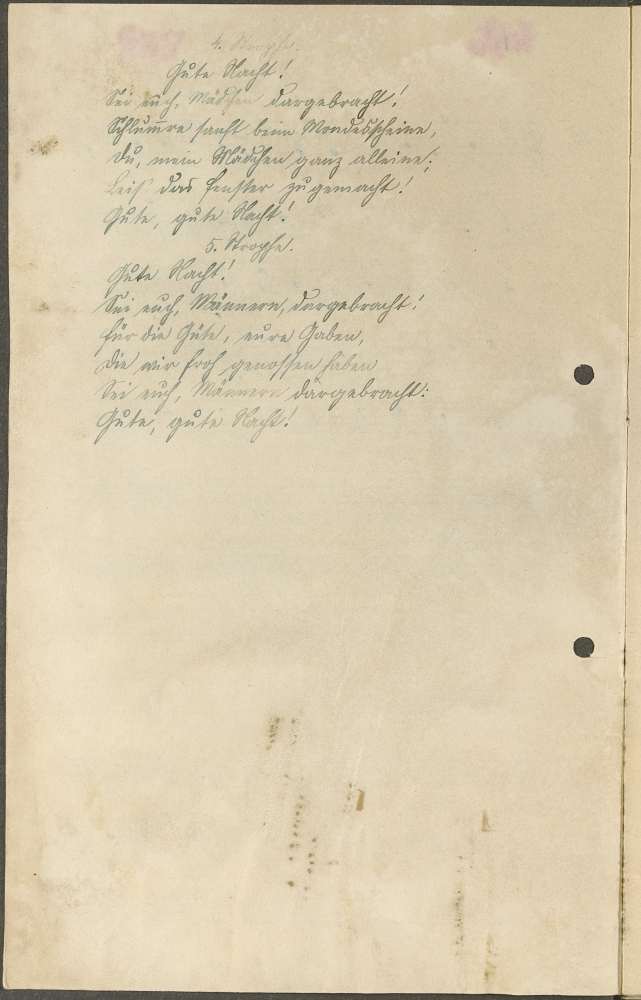 4. Strophe.
Gute Nacht!
Sei euch, Mädchen dargebracht!
Schlumre sanft beim Mondesscheine,
Du, mein Mädchen ganz alleine;
Leis das Fenster zugemacht!
Gute, gute Nacht!
5. Strophe.
Gute Nacht!
Sei euch, Männern, dargebracht!
Für die Güte, eure Gaben,
Die wir froh genossen haben
Sei euch, Männern dargebracht:
Gute, gute Nacht!